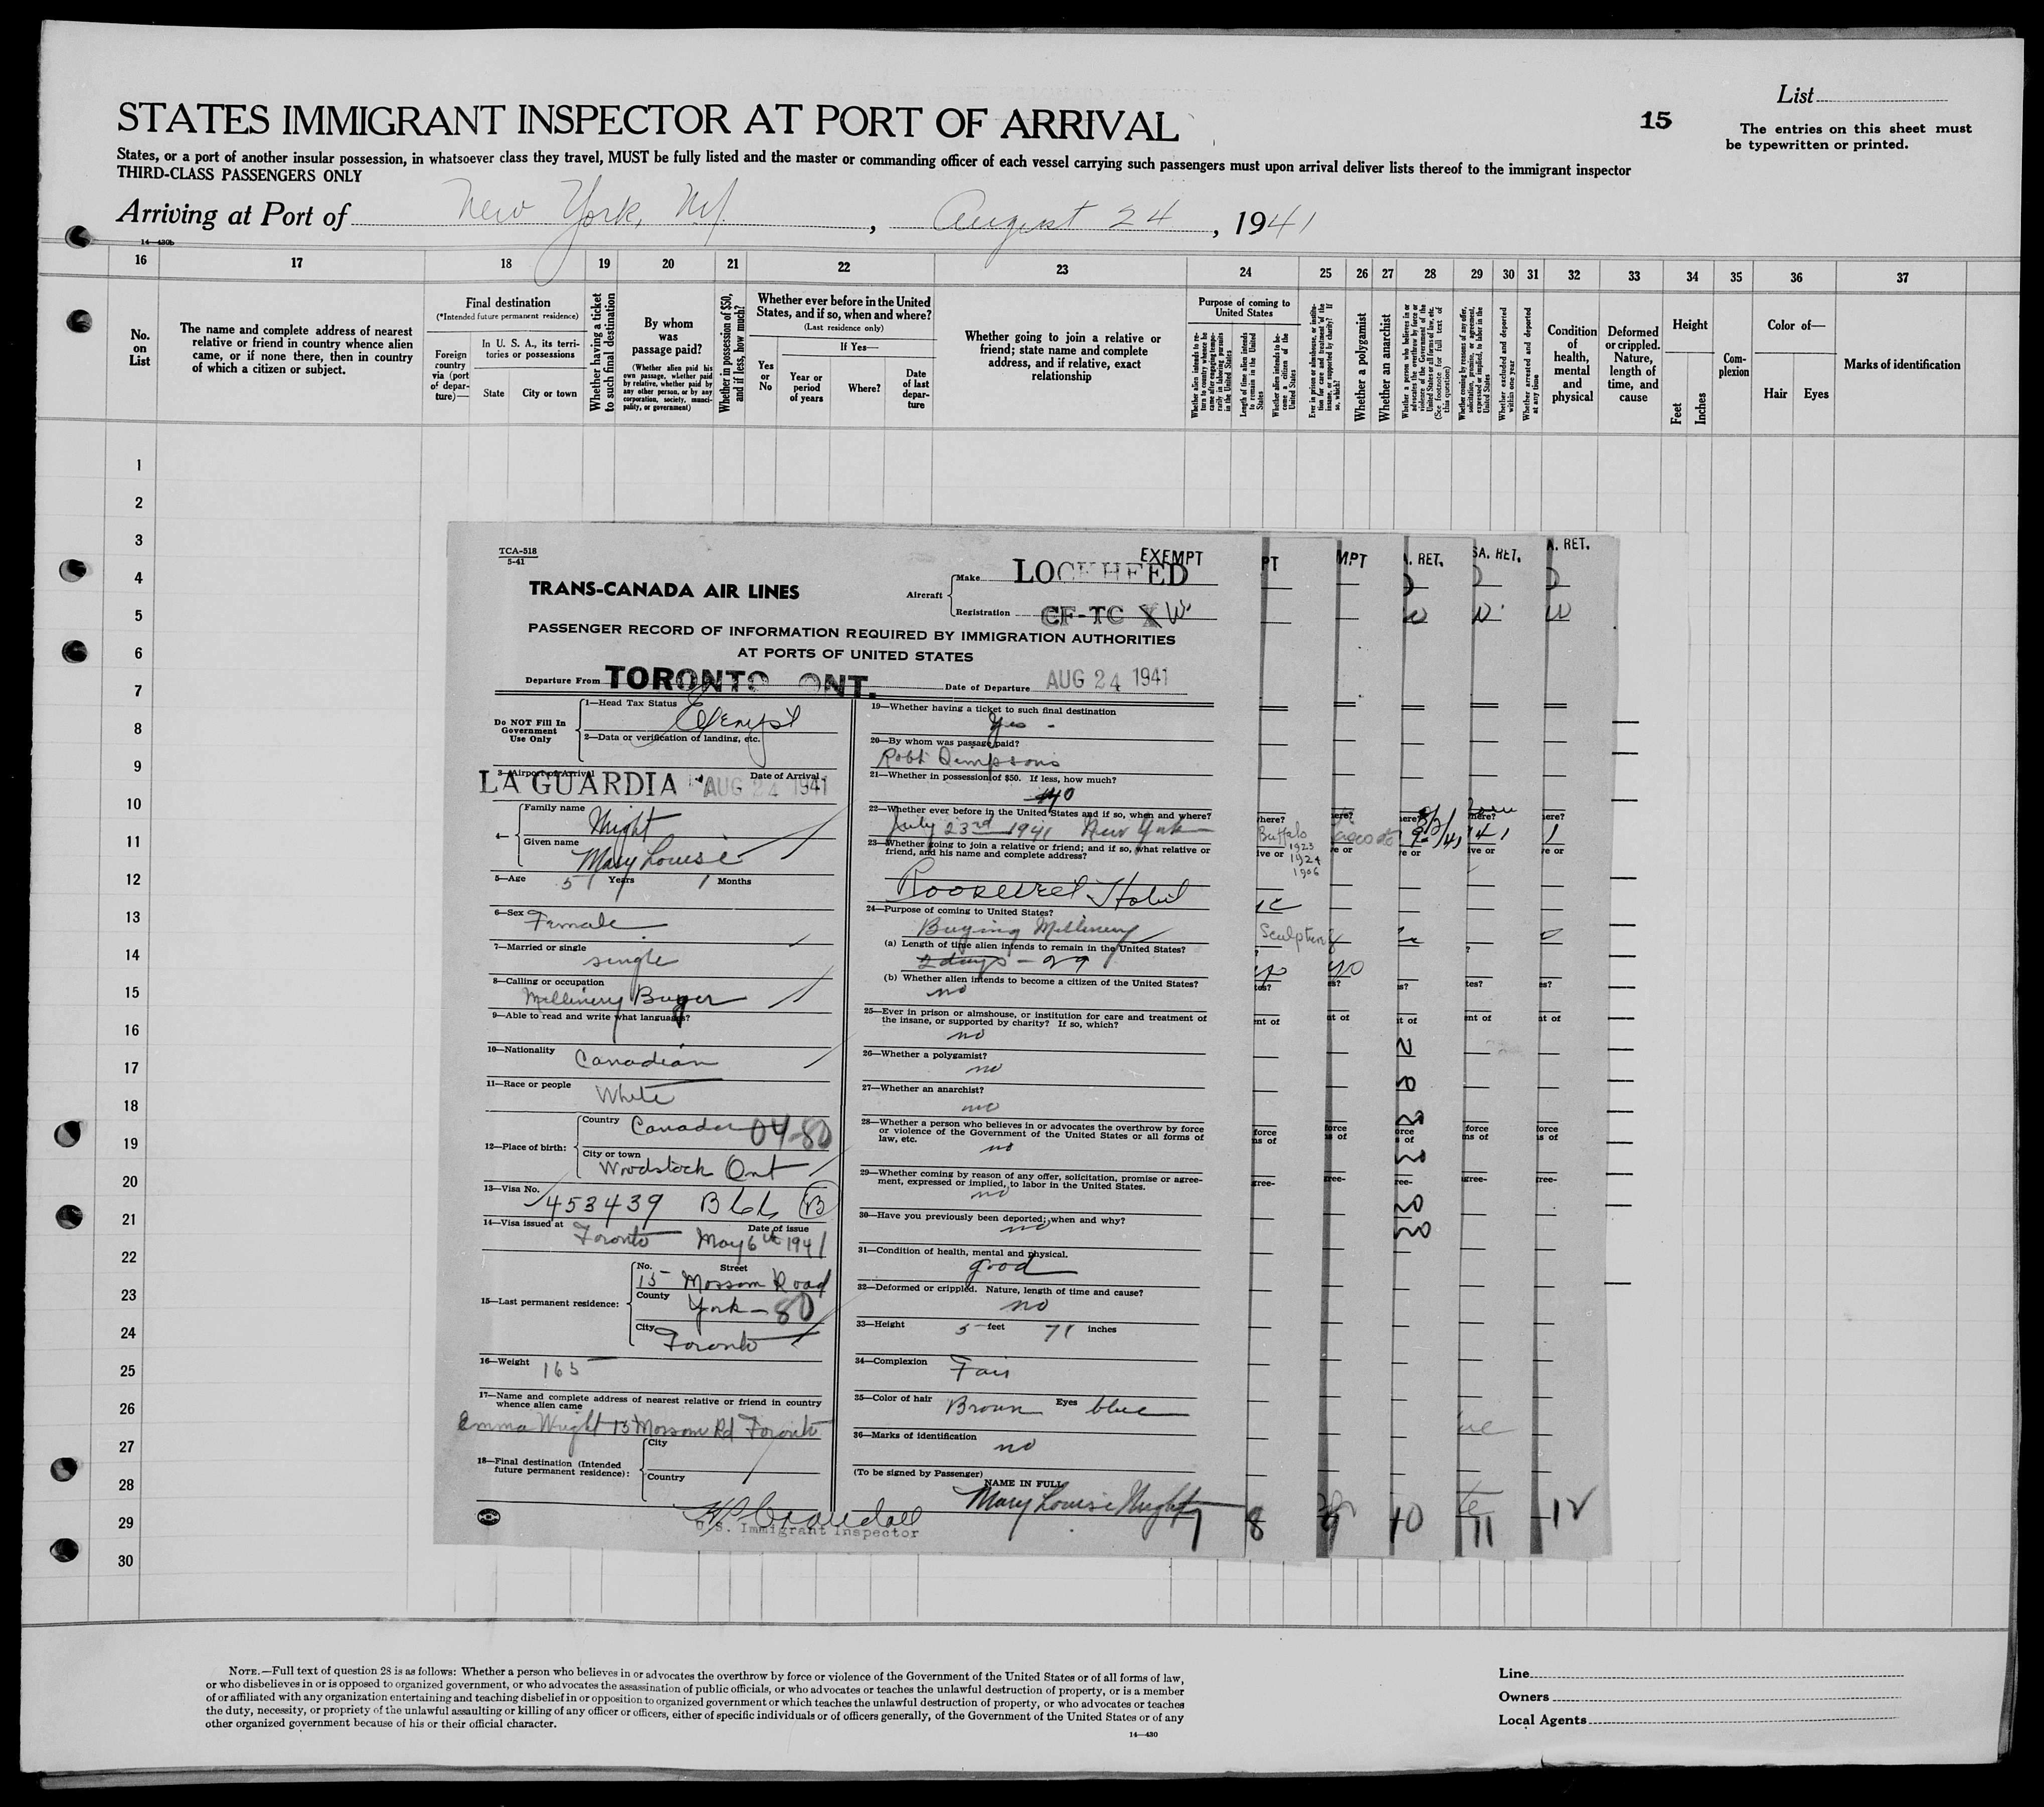 List
STATES IMMIGRANT INSPECTOR AT PORT OF ARRIVAL
15
The entries on this sheet must
be typewritten or printed.
States, or a port of another insular possession, in whatsoever class they travel, MUST be fully listed and the master or commanding officer of each vessel carrying such passengers must upon arrival deliver lists thereof to the immigrant inspector
THIRD-CLASS PASSENGERS ONLY
Arriving at Port of New York, NY, August 24, 1941
14—430b
16 17 18 19 20 21 22 23 24 25 26 27 28 29 30 31 32 33 34 35 36 37
No.
on
List
The name and complete address of nearest
relative or friend in country whence alien
came, or if none there, then in country
of which a citizen or subject.
Final destination
(*Intended future permanent residence)
Foreign
country
via (port
of depar-
ture)—
In U. S. A., its terri-
tories or possessions
State City or town
Whether having a ticket
to such final destination
By whom
was
passage paid?
(Whether alien paid his
own passage, whether paid
by relative, whether paid by
any other person, or by any
corporation, society, munici-
pality, or government)
Whether in possession of $50,
and if less, how much?
Whether ever before in the United
States, and if so, when and where?
(Last residence only)
Yes
or
No
If Yes—
Year or
period
of years
Where?
Date
of last
depar-
ture
Whether going to join a relative or
friend; state name and complete
address, and if relative, exact
relationship
Purpose of coming to
United States
Whether alien intends to re-
turn to country whence he
came after engaging tempo-
rarily in laboring pursuits
in the United States
Length of time alien intends
to remain in the United
States
Whether alien intends to be-
come a citizen of the
United States
Ever in prison or almshouse, or institu-
tion for care and treatment of the
insane, or supported by charity? If
so, which?
Whether a polygamist
Whether an anarchist
Whether a person who believes in or
advocates the overthrow by force or
violence of the Government of the
United States or all forms of law, etc.
(See footnote for full text of
this question)
Whether coming by reasons of any offer,
solicitation, promise, or agreement,
expressed or implied, to labor in the
United States
Whether excluded and deported
within one year
Whether arrested and deported
at any time
Condition
of
health,
mental
and
physical
Deformed
or crippled.
Nature,
length of
time, and
cause
Height
Feet
Inches
Com-
plexion
Color of—
Hair Eyes
Marks of identification
1
2
3
4
5
6
7
8
9
10
11
12
13
14
15
16
17
18
19
20
21
22
23
24
25
26
27
28
29
30
TCA-518
5-41
TRANS-CANADA AIR LINES
EXEMPT
Aircraft
Make LOCKHEED
Registration CF-TC X W
PASSENGER RECORD OF INFORMATION REQUIRED BY IMMIGRATION AUTHORITIES
AT PORTS OF UNITED STATES
Departure From TORONTO ONT.
Date of Departure AUG 24 1941
Do NOT Fill In
Government
Use Only
1—Head Tax Status Exempt
2—Data or verification of landing, etc.
3—Airport of Arrival LA GUARDIA
Date of Arrival AUG 24 1941
4—
Family name Wright
Given name Mary Louise
5—Age 51 Years 1 Months
6—Sex Female
7—Married or single
single
8—Calling or occupation
Millinery Buyer
9—Able to read and write what language?
10—Nationality Canadian
11—Race or people White
12—Place of birth:
Country Canada 04-80
City or town
Woodstock Ont
13—Visa No. 453439 B66 B
14—Visa issued at Toronto
Date of issue May 6th 1941
15—Last permanent residence:
No. Street
15 Mossom Road
County York - 80
City Toronto
16—Weight 165
17—Name and complete address of nearest relative or friend in country
whence alien came
Emma Wright 15 Mossom Rd Toronto
18—Final destination (Intended
future permanent residence):
City
Country
U.S. Immigrant Inspector
19—Whether having a ticket to such final destination
Yes -
20—By whom was passage paid?
Robt Simpsons
21—Whether in possession of $50. If less, how much?
40
22—Whether ever before in the United States and if so, when and where?
July 23rd 1941 New York
23—Whether going to join a relative or friend; and if so, what relative or
friend, and his name and complete address?
Roosevelt Hotel
24—Purpose of coming to United States?
Buying Millinery
(a) Length of time alien intends to remain in the United States?
2 days - 29
(b) Whether alien intends to become a citizen of the United States?
no
25—Ever in prison or almshouse, or institution for care and treatment of
the insane, or supported by charity? If so, which?
no
26—Whether a polygamist?
no
27—Whether an anarchist?
no
28—Whether a person who believes in or advocates the overthrow by force
or violence of the Government of the United States or all forms of
law, etc.
no
29—Whether coming by reason of any offer, solicitation, promise or agree-
ment, expressed or implied, to labor in the United States.
no
30—Have you previously been deported; when and why?
no
31—Condition of health, mental and physical.
good
32—Deformed or crippled. Nature, length of time and cause?
no
33—Height 5 feet 7 1 inches
34—Complexion Fair
35—Color of hair Brown Eyes blue
36—Marks of identification
no
(To be signed by Passenger)
NAME IN FULL
Mary Louise Wright
7 8 9 10 11 12
PT MPT A. RET. SA. RET. A. RET.
Buffalo
1923
1924
1906
Sculpture
NOTE.—Full text of question 28 is as follows: Whether a person who believes in or advocates the overthrow by force or violence of the Government of the United States or of all forms of law,
or who disbelieves in or is opposed to organized government, or who advocates the assassination of public officials, or who advocates or teaches the unlawful destruction of property, or is a member
of or affiliated with any organization entertaining and teaching disbelief in or opposition to organized government or which teaches the unlawful destruction of property, or who advocates or teaches
the duty, necessity, or propriety of the unlawful assaulting or killing of any officer or officers, either of specific individuals or of officers generally, of the Government of the United States or of any
other organized government because of his or their official character.
14—430
Line
Owners
Local Agents